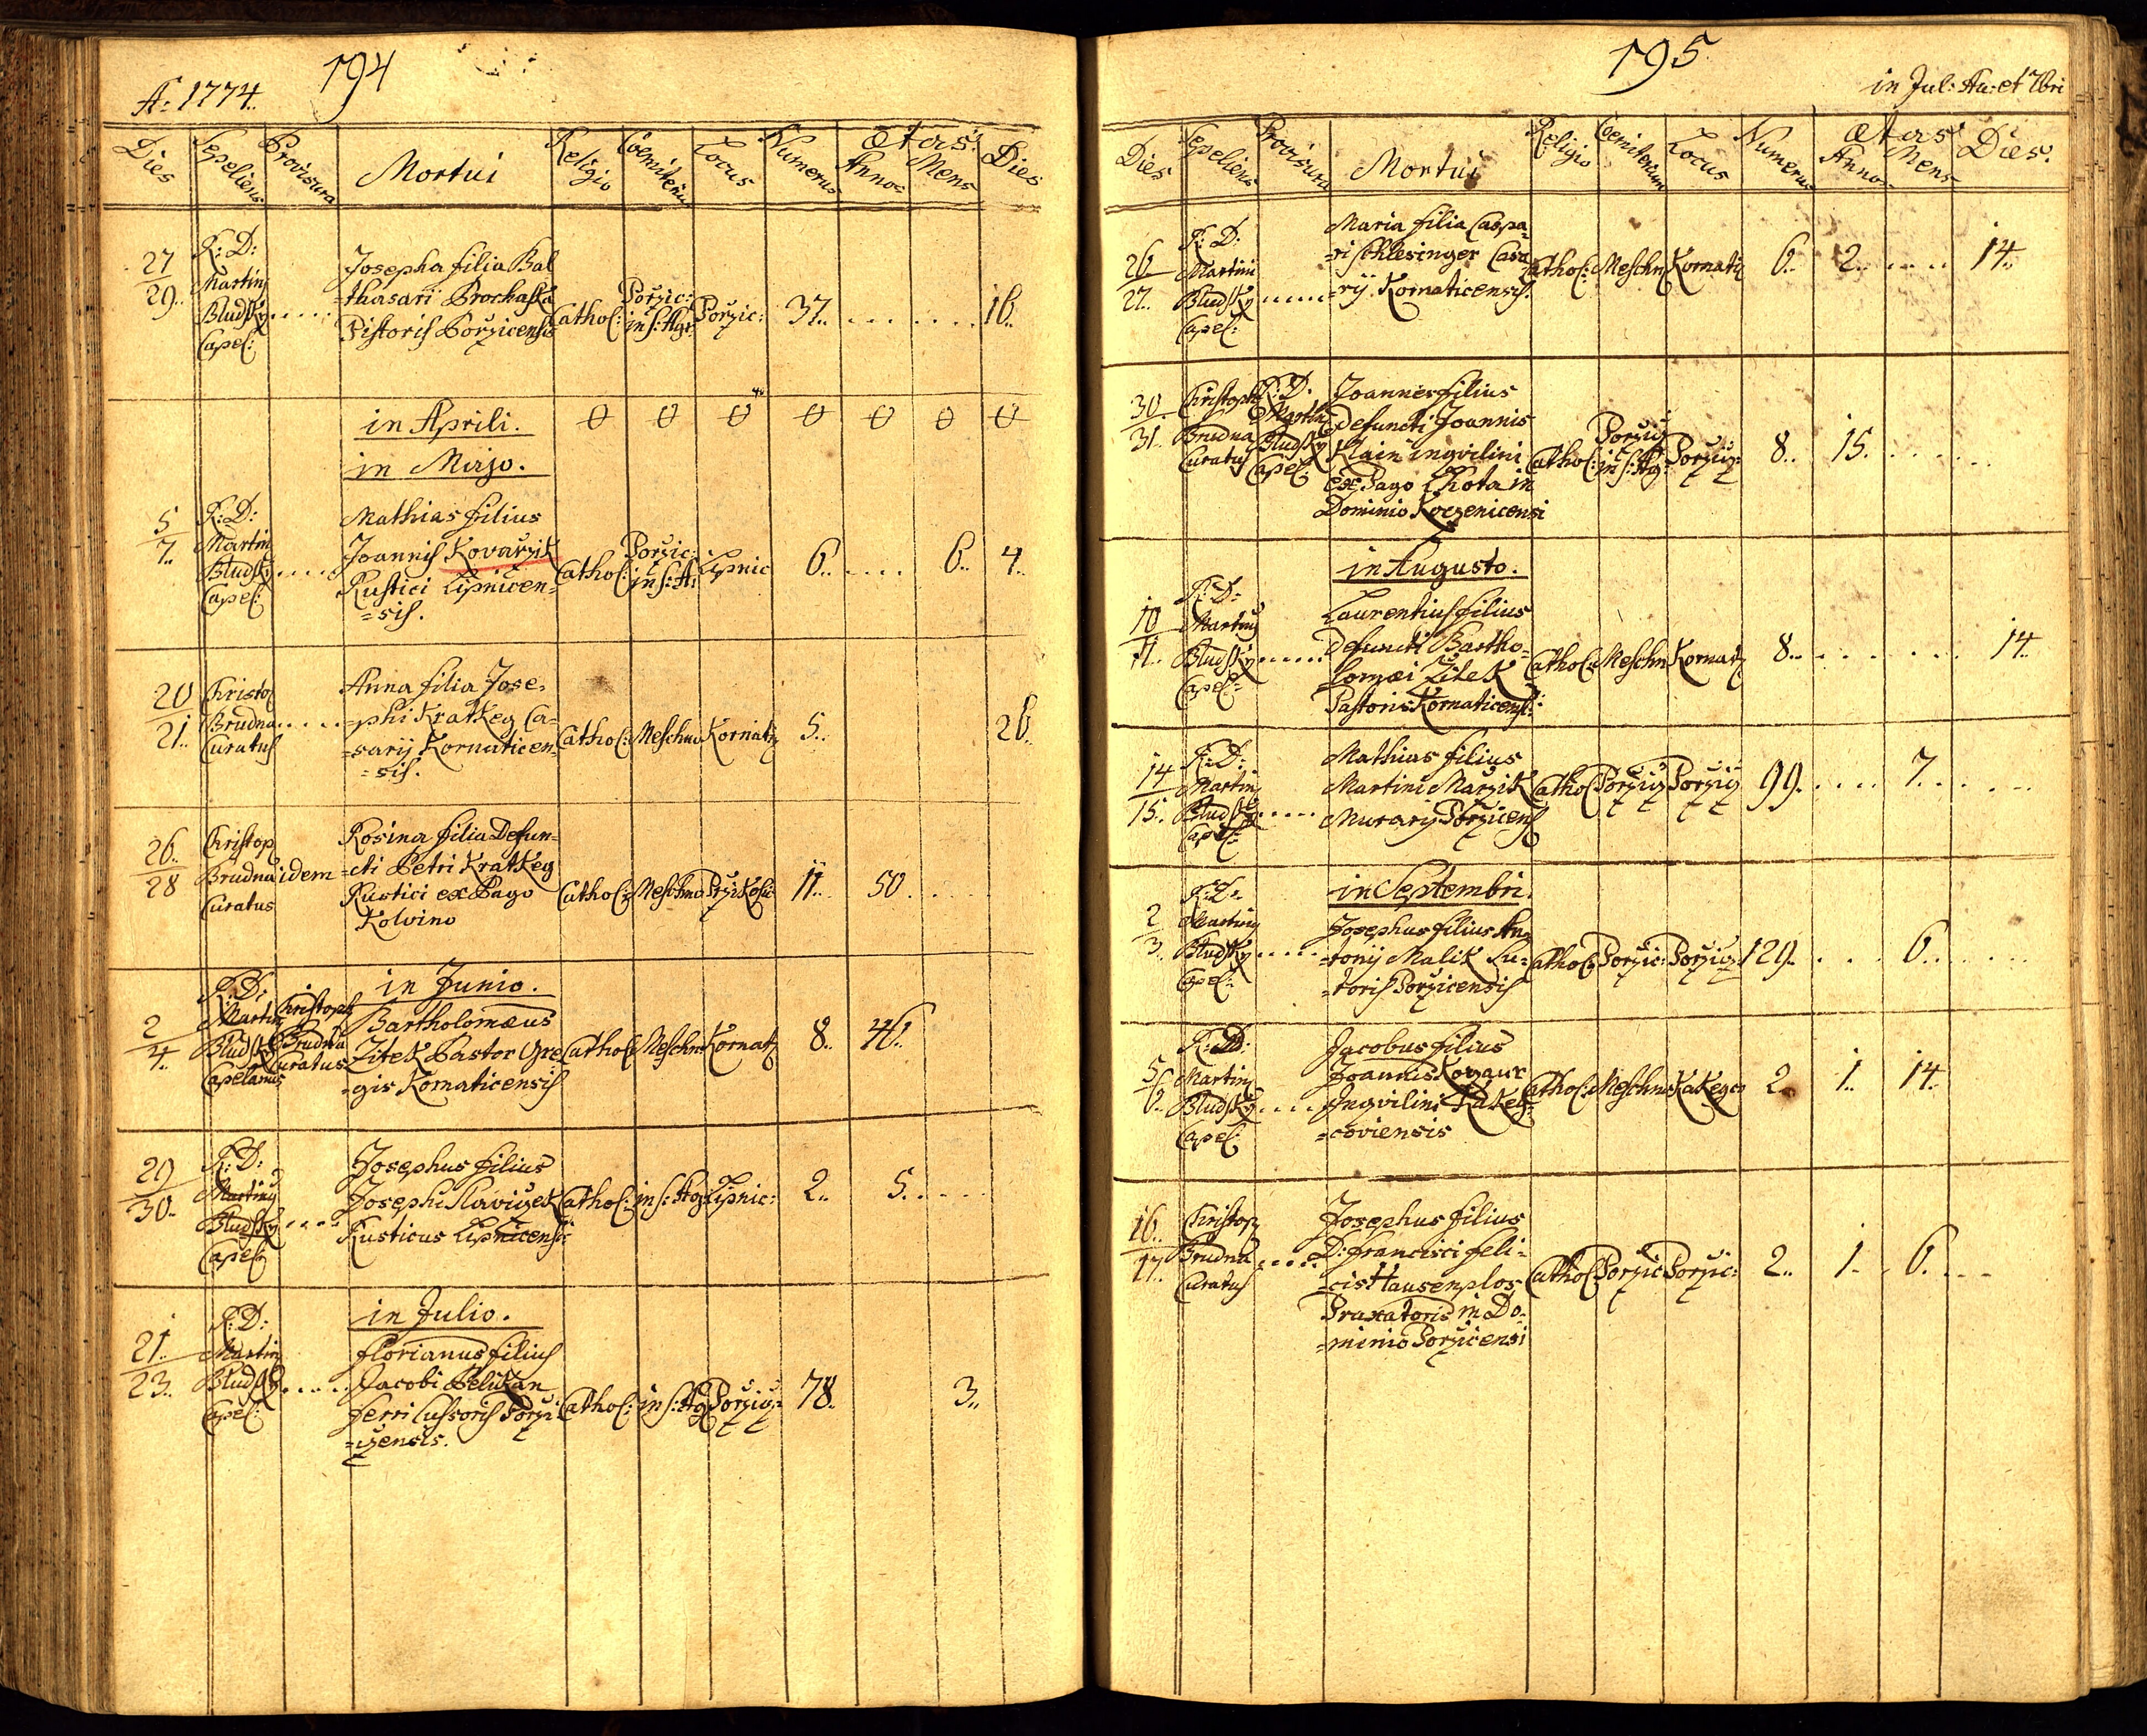 A: 1774.
194
Dies Sepeliens Provisura Mortui Religio Coemiterium Locus Numerus Ætas: Annor Mens Dies
27/29.. R: D: Martinj Bludsky Capel: ..... Josepha filia Bal
=thasari Prochaska
Pistoris Porzicensis Cathol: Porzic: in s: Agr: Porzic: 37.. ... ... 16..
in Aprili. 0 0 0 0 0 0 0
in Majo.
5/7.. R: D: Martin Bludsky Capel: ..... Mathias filius
Joannis Kovarzik
Rustici Lipnicen=
=sis. Cathol: Porzic: in s: A: Lipnic 6.. .... 6.. 4..
20/21.. Christo Brudna Curatus ..... Anna filia Jose=
=phi Kratkeg Ca=
=sarij Kornaticen=
=sis. Cathol: Meschno Kornatz 5.. 26..
26../28 Christop Brudna Curatus idem Rosina filia Defun=
=cti Petri Kratkeg
Rustici ex Pago
Kolvino Cathol: Meschno 11.. 50. ..
in Junio.
2/4.. R: D: Martin Bludsky Capelanus Christoph Brudna Curatus Bartholomæus
Zitek Pastor Gre
=gis Kornaticensis Cathol: Meschn Kornatz 8.. 46..
29/30.. R: D: Martinj Bludsky Capel: ..... Josephus filius
Josephi Slavizek
Rusticus Lipnicensis Cathol: in s: Ag: Lipnic: 2.. 5. ...
in Julio.
21./23.. R: D: Martin Bludsky Capel: ..... Florianus filius
Jacobi Pelikan
Ferri Cussoris Porzi
=izensis. Cathol: in s: Ag: Porziz: 78.. 3..
195
in Jul: Au: et 7bri
Dies Sepeliens Provisura Mortui Religio Coemiterium Locus Numerus Ætas Annor Mens Dies.
26/27.. R: D: Martini Bludsky Capel: ..... Maria filia Caspa=
=ri Schlesinger Casa
=rij Kornaticensis. Cathol: Meschn Kornatiz 6.. 2.. .... 14..
30/31.. Christoph Brudna Curatus R: D. Martin Bludsky Capel: Joannes filius
defuncti Joannis
Klain ingvilini
ex Pago Lhota in
Dominio Kozenicensi Cathol: Porziz in s: Ag: Porziz: 8.. 15. .....
in Augusto.
10/11.. R: D: Martinj Bludsky Capel: ..... Laurentius filius
Defuncti Bartho=
lomæi Zitek
Pastoris Kornaticens: Cathol: Meschn Kornatz 8.. ..... 14..
14/15.. R: D: Martinj Bludsky Capel: ..... Mathias filius
Martini Marzik
Murarij Porzicens Cathol Porziz Porziz 99. .... 7. ...
in Septembri.
2/3.. R: D: Martinj Bludsky Capel: ..... Josephus filius An
=tonij Malik Su=
=toris Porzicensis Cathol: Porzic: Porziz: 129. ... 6.. ...
5/6.. R: D: Martinj Bludsky Capel: .... Jacobus filius
Joannis
Ingvilini Kakeg=
=coviensis Cathol: Meschno Kakegco 2. 1.. 14..
16../17.. Christop Brudna Curatus ..... Josephus filius
D: Francisci Feli=
=cis Hausenplos
Praxatoris in Do=
=minio Porzicensi Cathol Porzic Porzic: 2.. 1.. 6. ...